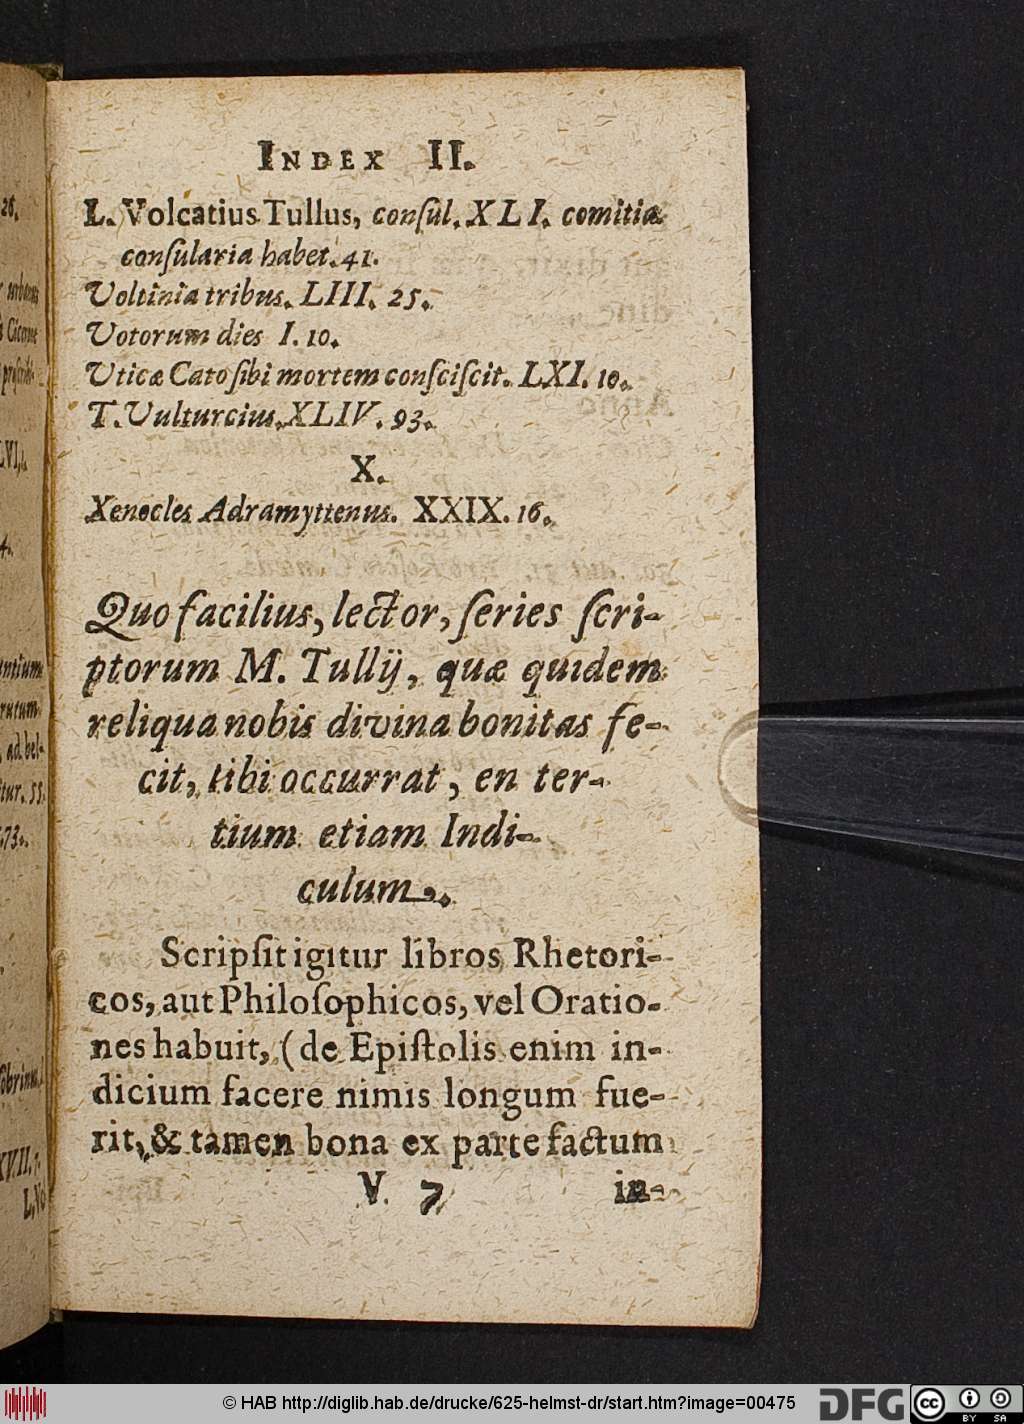 INDEX II.
L. Volcatius Tullus, conſul. XLI. comitia
conſularia habet. 41.
Voltinia tribus. LIII. 25.
Votorum dies I. 10.
Uticæ Cato ſibi mortem conſciſcit. LXI. 10.
T. Vulturcius. XLIV. 93.
X.
Xenocles Adramyttenus. XXIX. 16.
Quo facilius, lector, ſeries ſcri-
ptorum M. Tullij, quæ quidem
reliqua nobis divina bonitas fe-
cit, tibi occurrat, en ter-
tium etiam Indi-
culum.
Scripſit igitur libros Rhetori-
cos, aut Philoſophicos, vel Oratio-
nes habuit, (de Epiſtolis enim in-
dicium facere nimis longum fue-
rit, & tamen bona ex parte factum
V 7 in-
26.
LVI,
4.
73.
ſobrinus
XVII.
L. Vo
© HAB http://diglib.hab.de/drucke/625-helmst-dr/start.htm?image=00475
DFG
cc
BY SA